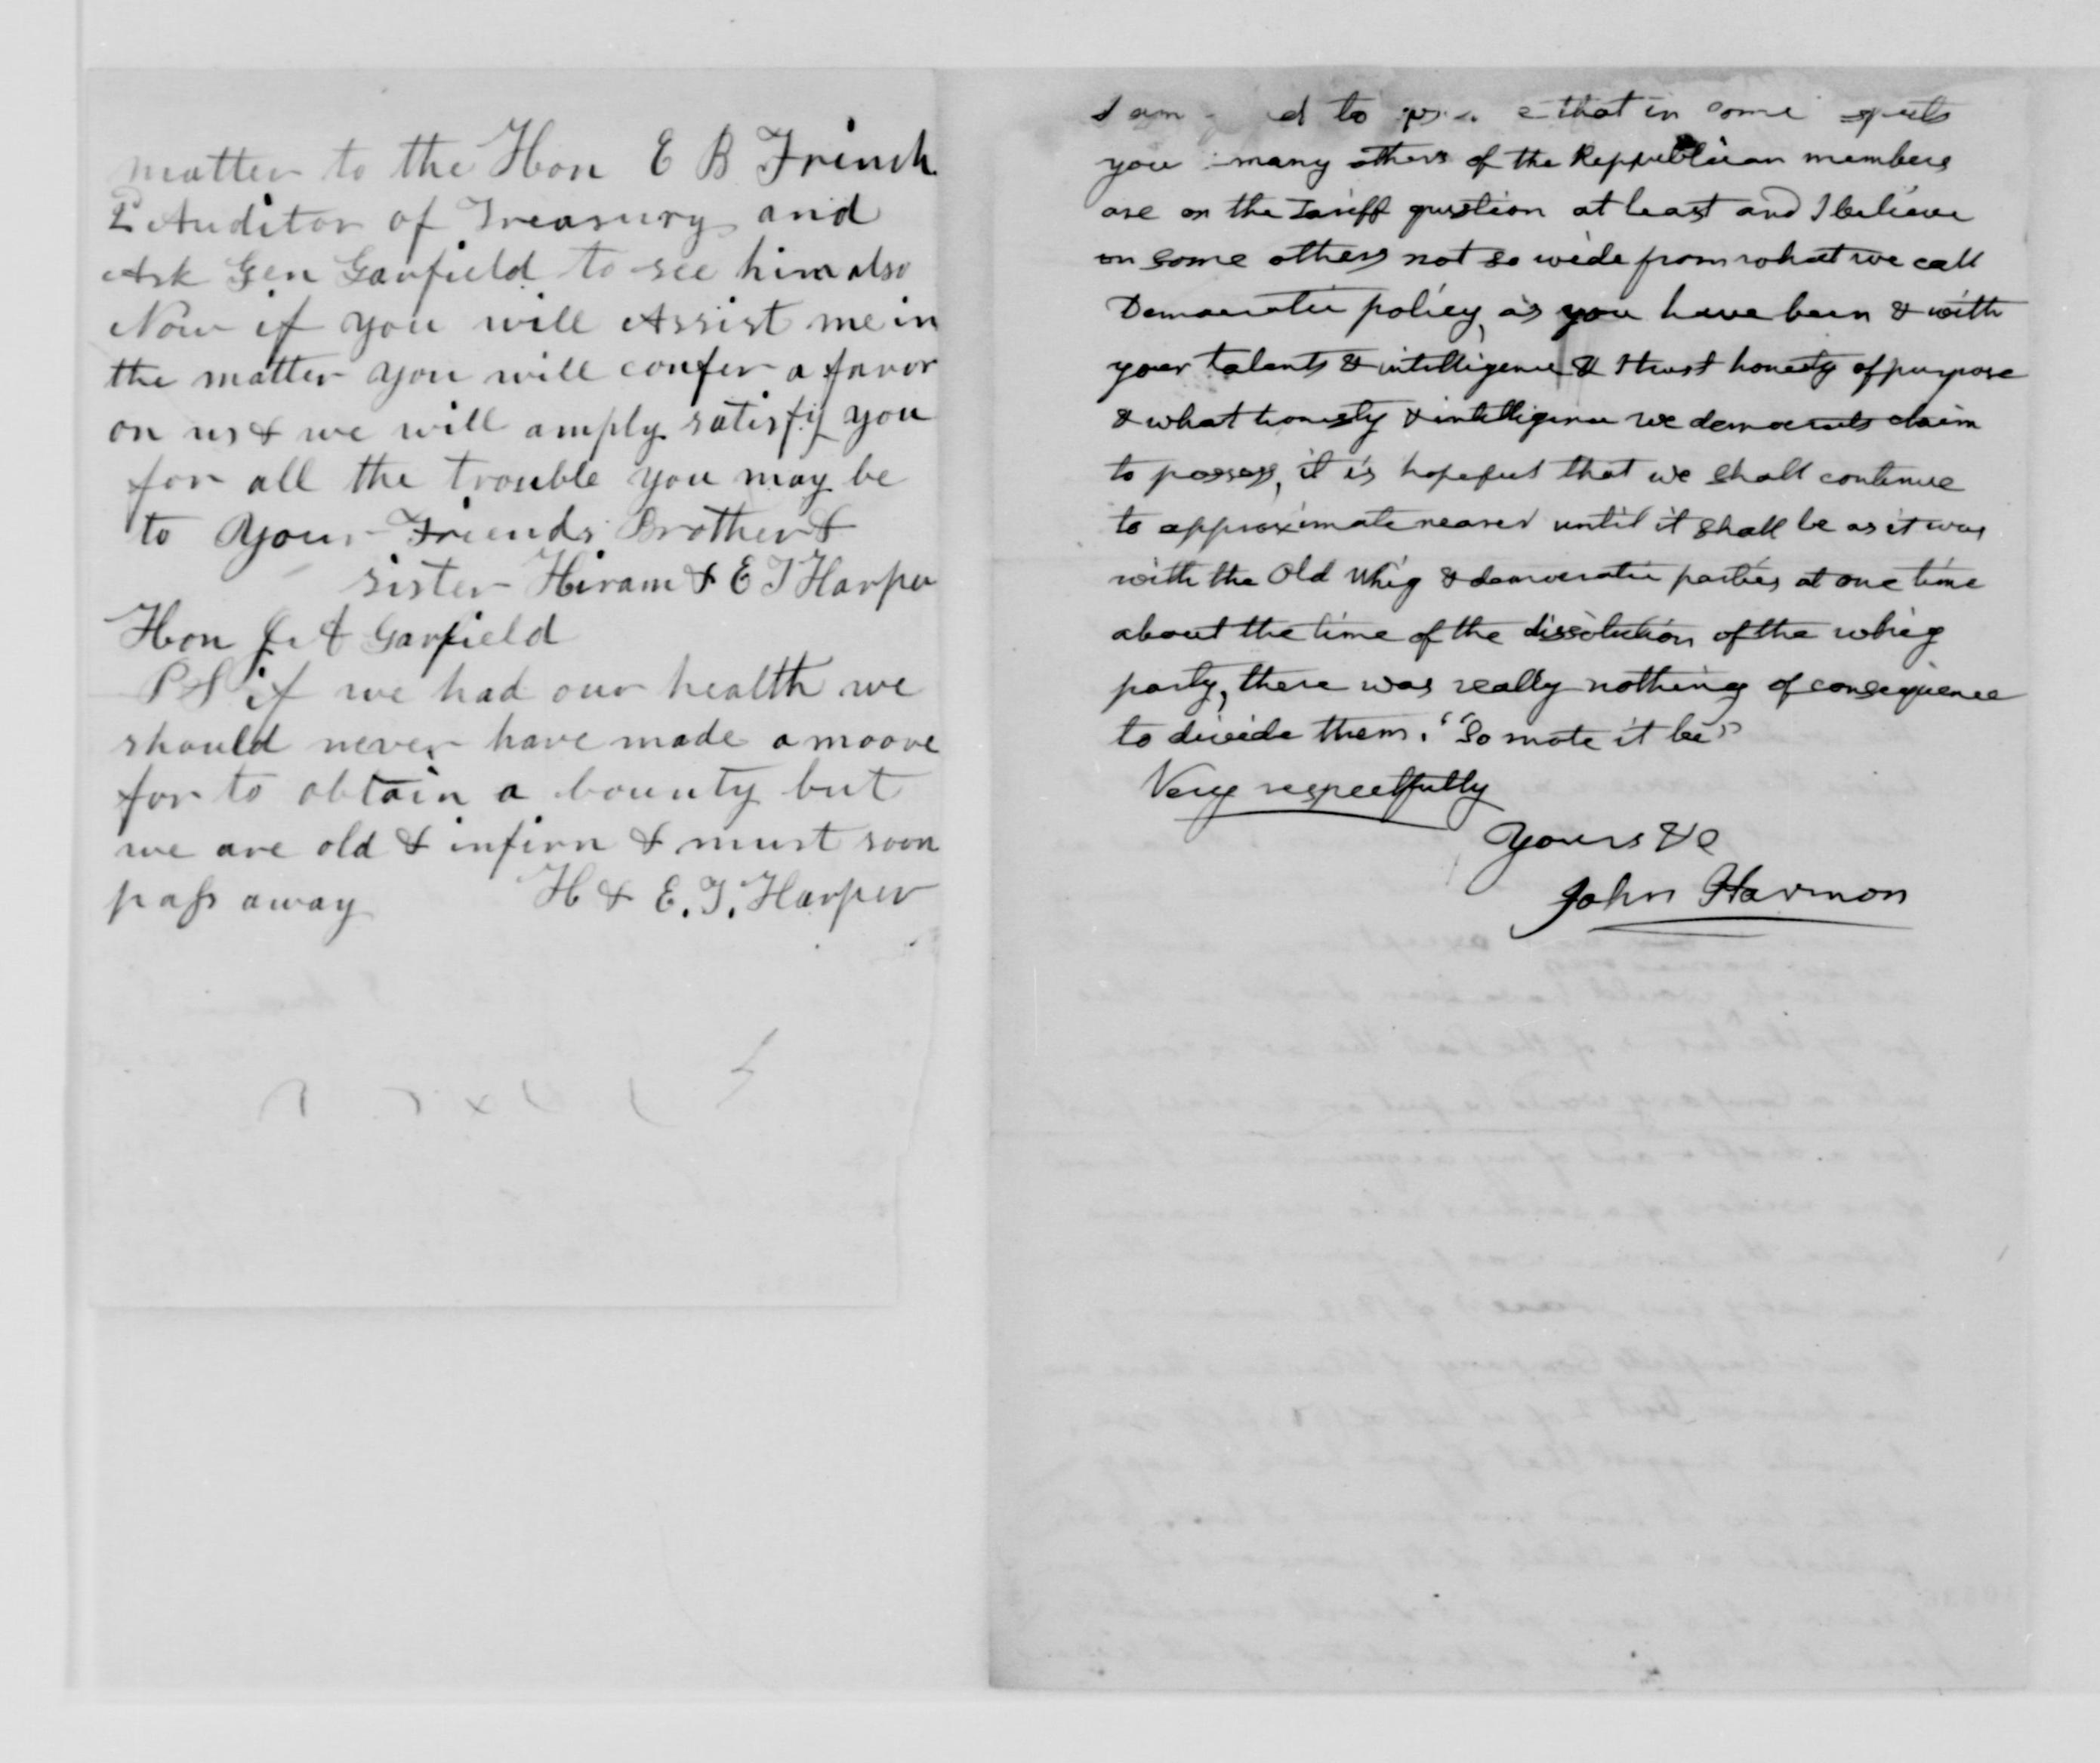 matter to the Hon E B Frinch
2d Auditor of Treasury and
Ask Gen Garfield to see him also
Now if you will Assist me in
the matter you will confer a favor
on us & we will amply satisfy you
for all the trouble you may be
to Your Friends Brother &
sister Hiram & E T Harper
Hon J A Garfield
PS if we had our health we
should never have made a moove
for to obtain a bounty but
we are old & infirm & must soon
pass away H & E. T. Harper
I am to that in some
you many others of the Reppublican members
are on the Tariff question at least and I believe
on some others not so wide from what we call
Democratic policy, as you have been & with
your talents & intelligence & I trust honesty of purpose
& what honesty & intelligence we democrats claim
to possess, it is hopeful that we shall continue
to approximate nearer until it shall be as it was
with the Old Whig & democratic parties at one time
about the time of the dissolution of the whig
party, there was really nothing of consequence
to divide them. "So mote it be"
Very respectfully
Yours &c
John Harmon